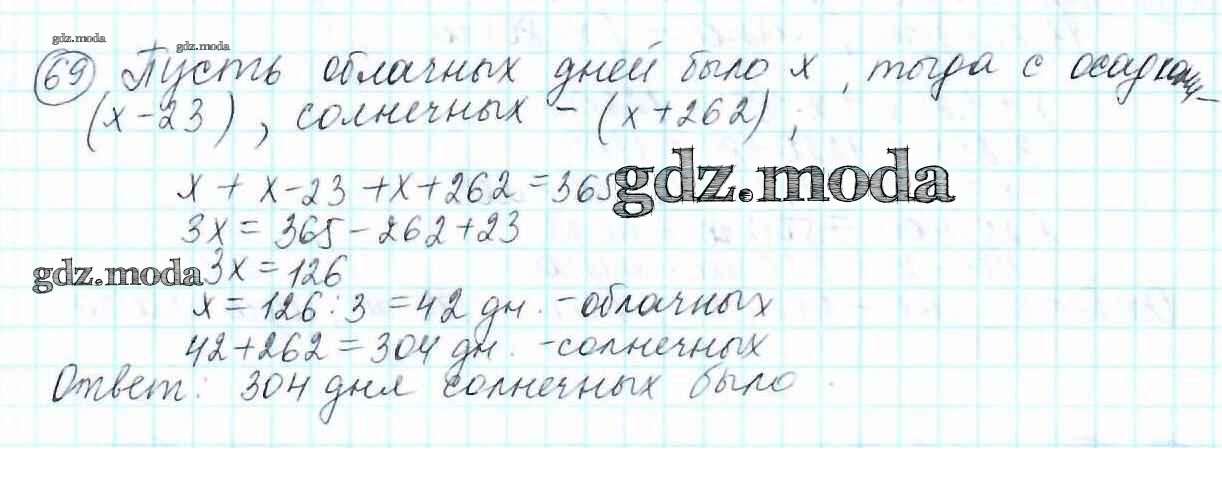 gdz.moda
gdz.moda
69 Пусть облачных дней было x, тогда с осадками –
(x-23), солнечных – (x+262);
x + x-23 +x+262 = 365
gdz.moda
3x = 365-262+23
gdz.moda
3x = 126
x = 126:3 = 42 дн. - облачных
42+262 = 304 дн. - солнечных
Ответ: 304 дня солнечных было.
gdz.moda